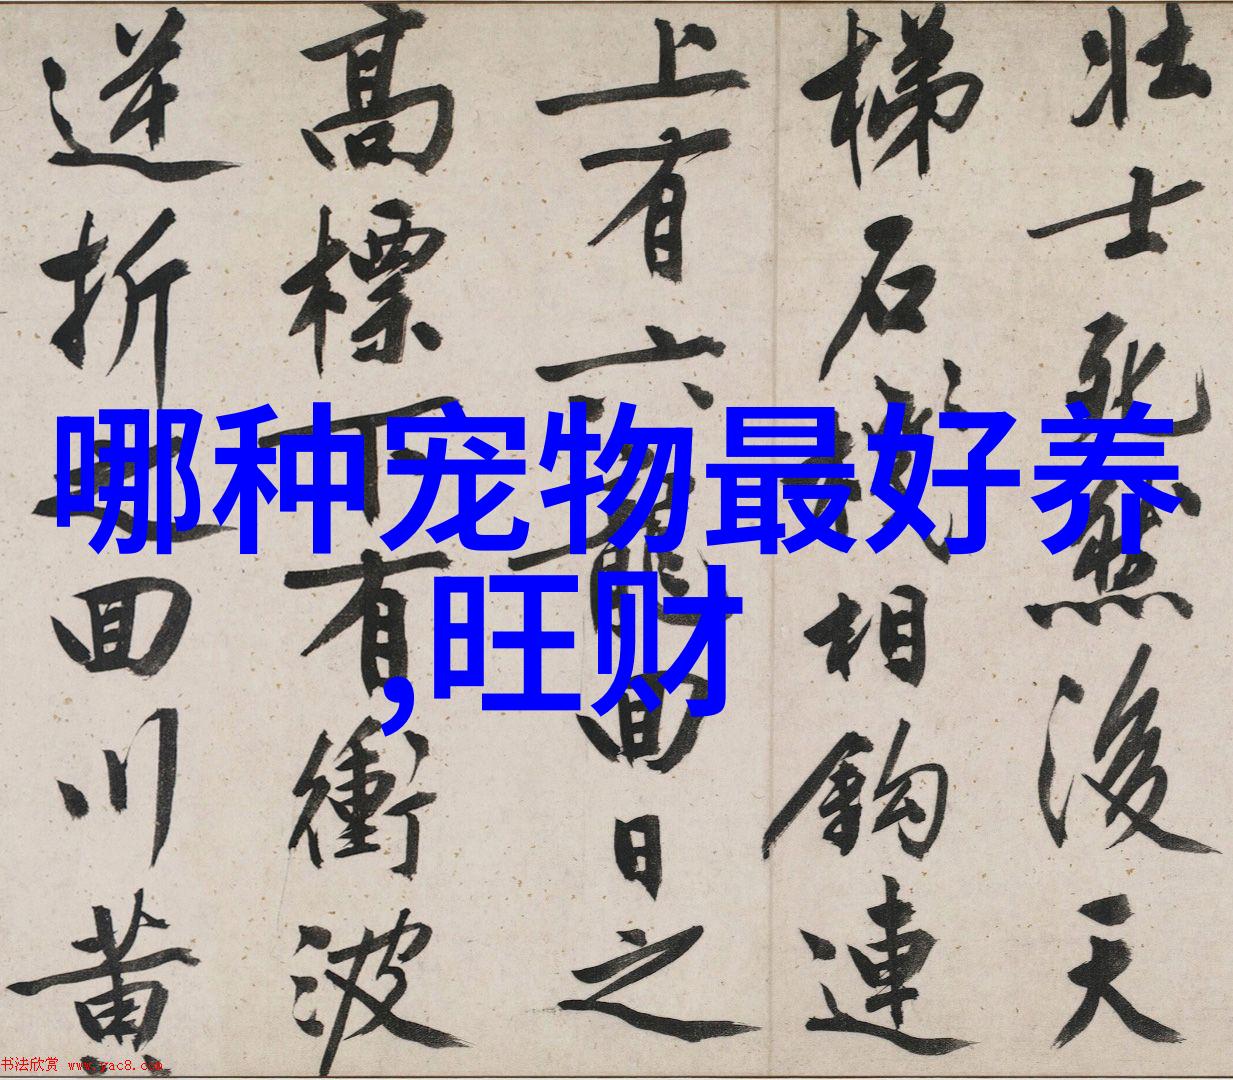 壮士死然後天
梯石棧相鈎連
上有六龍囬日之
高標下有衝波
逆折之囬川黄
哪种宠物最好养
,旺财
书法欣赏 www.yac8.com